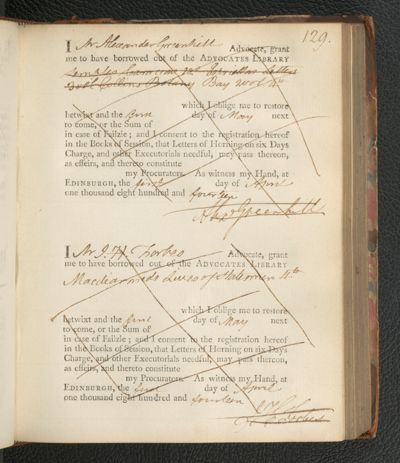 129.
I Mr Alexander Greenhill Advocate, grant
me to have borrowed out of the ADVOCATES LIBRARY
Letters
Botany Bay
which I oblige me to restore
betwixt and the first day of May next
to come, or the Sum of
in case of Failzie; and I consent to the registration hereof
in the Books of Session, that Letters of Horning on six Days
Charge, and other Executorials needful, may pass thereon,
as effeirs, and thereto constitute
my Procurators. As witness my Hand, at
EDINBURGH, the first day of April
one thousand eight hundred and fourteen
Greenhill
I Mr J. H. Forbes Advocate, grant
me to have borrowed out of the ADVOCATES LIBRARY
Lives of Statesmen 4to
which I oblige me to restore
betwixt and the first day of May next
to come, or the Sum of
in case of Failzie; and I consent to the registration hereof
in the Books of Session, that Letters of Horning on six Days
Charge, and other Executorials needful, may pass thereon,
as effeirs, and thereto constitute
my Procurators. As witness my Hand, at
EDINBURGH, the first day of April
one thousand eight hundred and fourteen